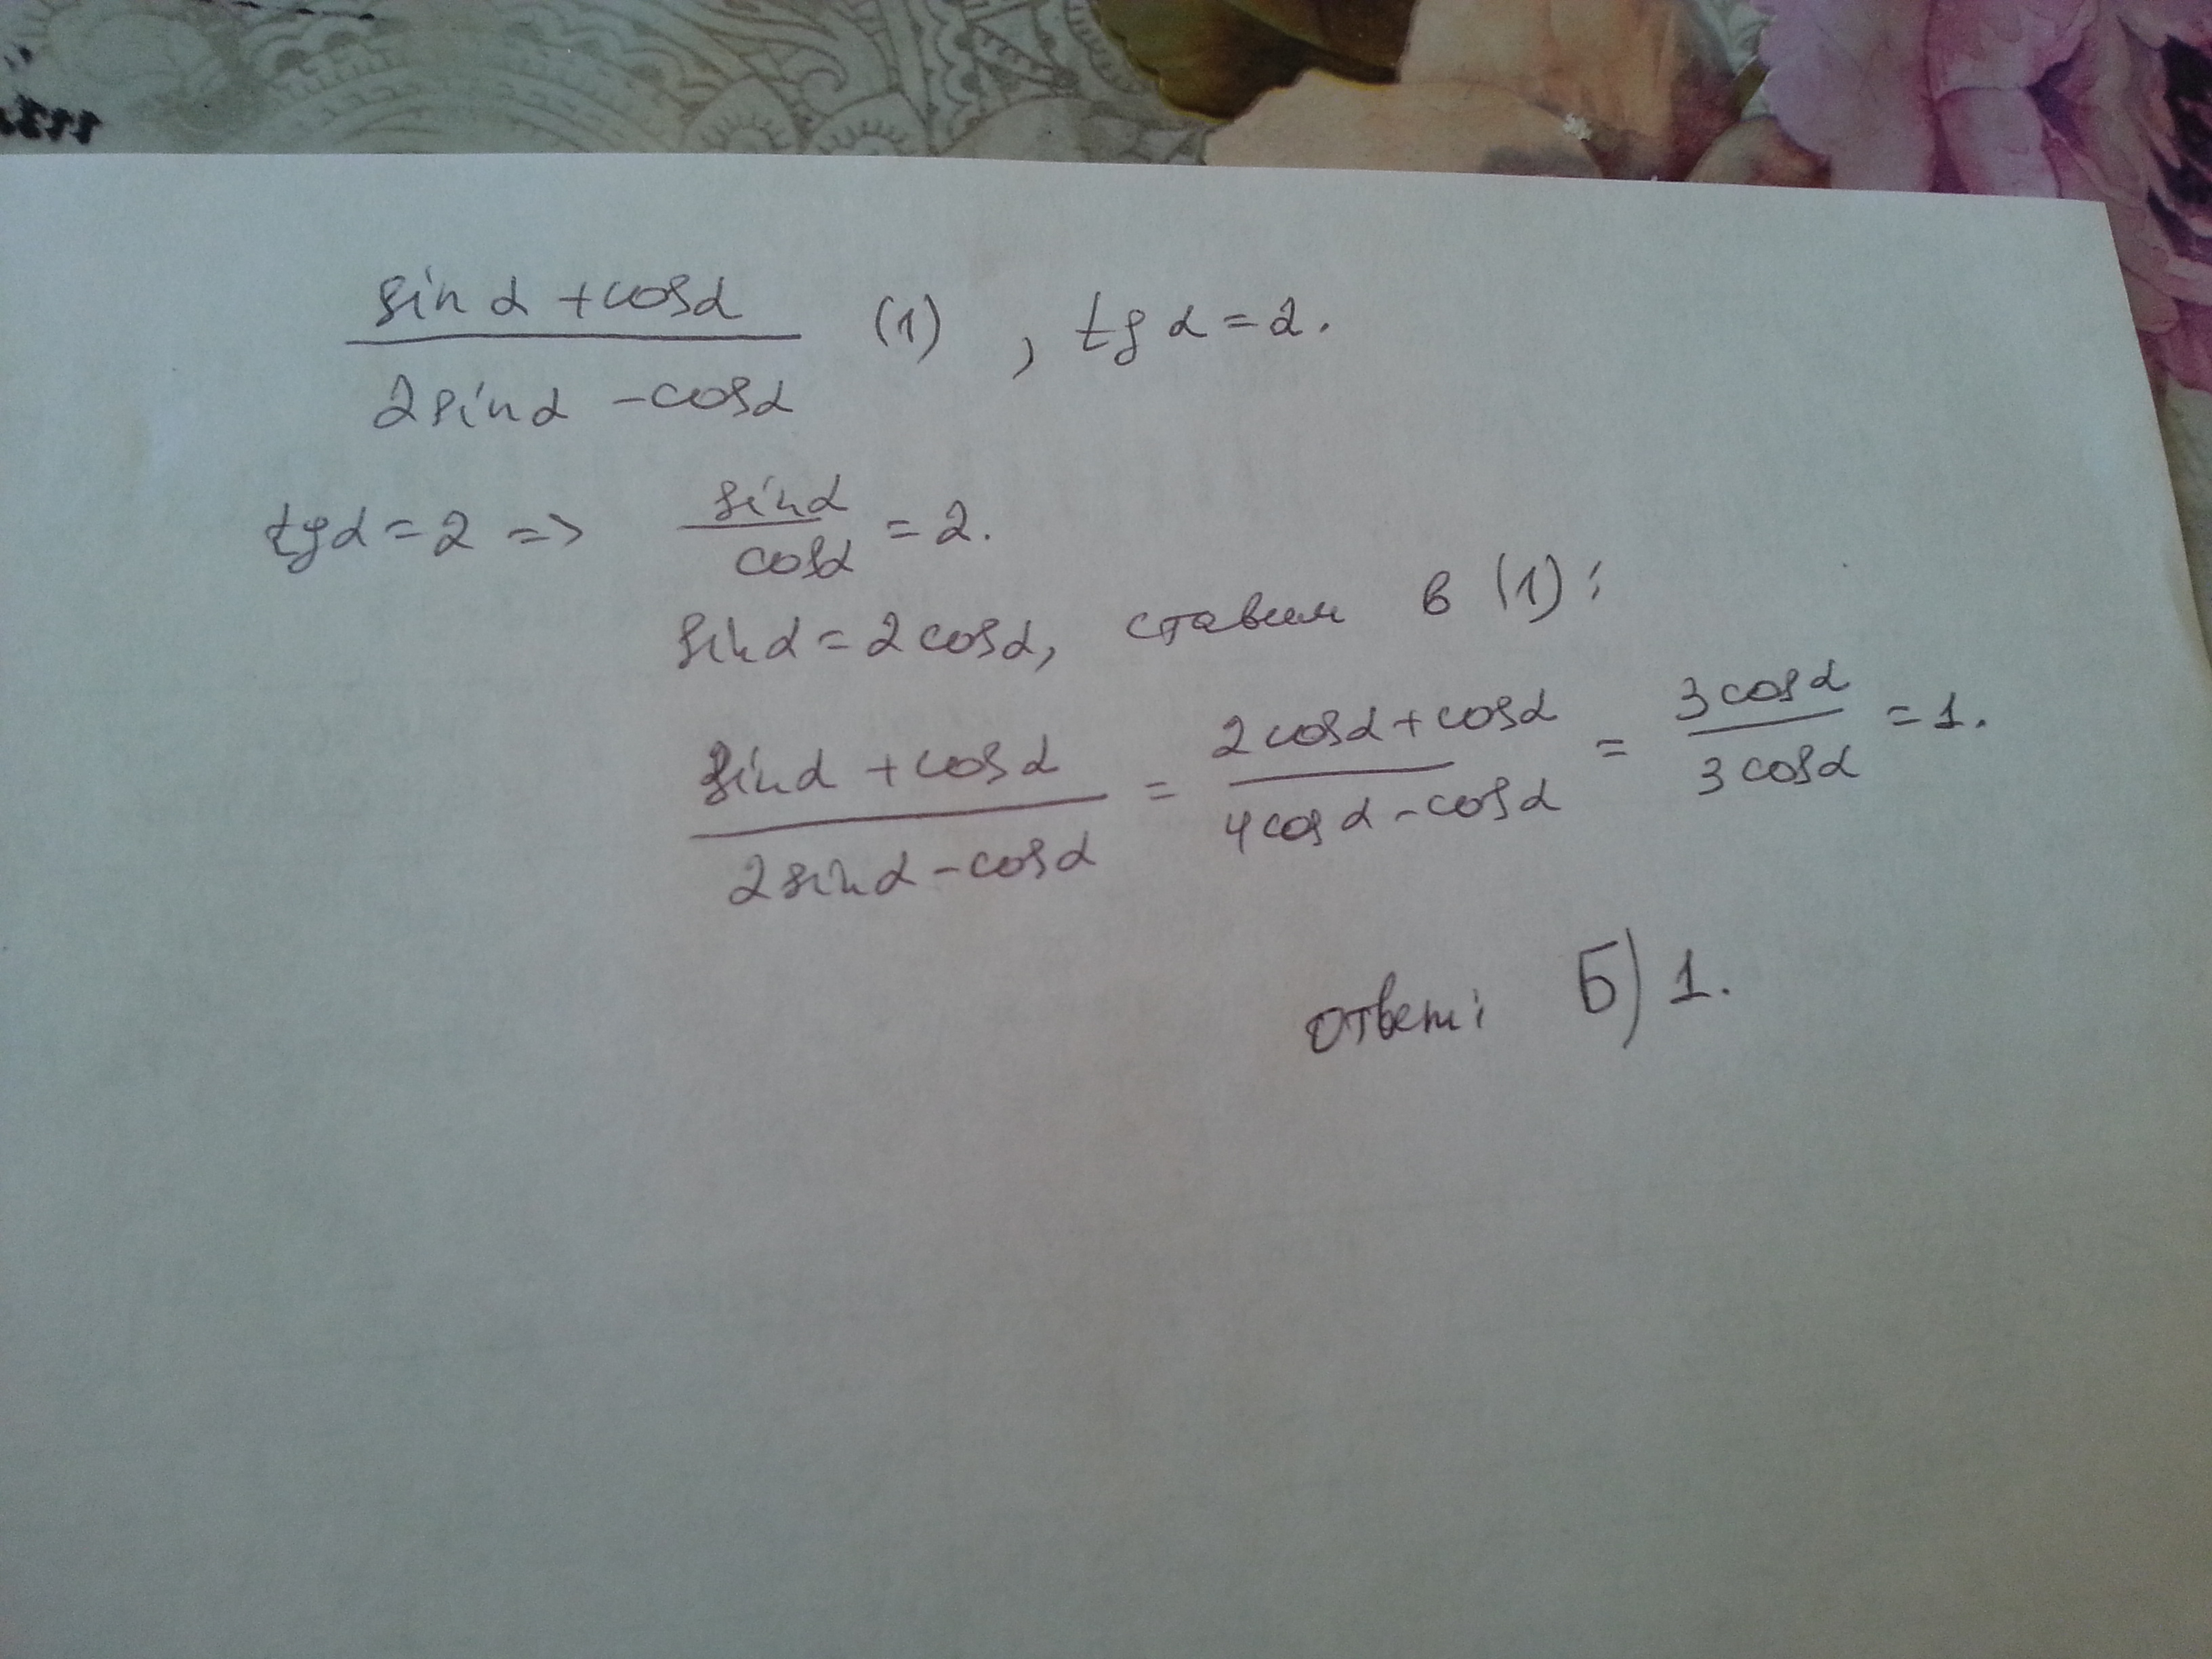 sin α + cos α / 2 sin α - cos α (1) , tg α = 2.
tg α = 2 => sin α / cos α = 2.
sin α = 2 cos α, ставим в (1):
sin α + cos α / 2 sin α - cos α = 2 cos α + cos α / 4 cos α - cos α = 3 cos α / 3 cos α = 1.
ответ: Б) 1.